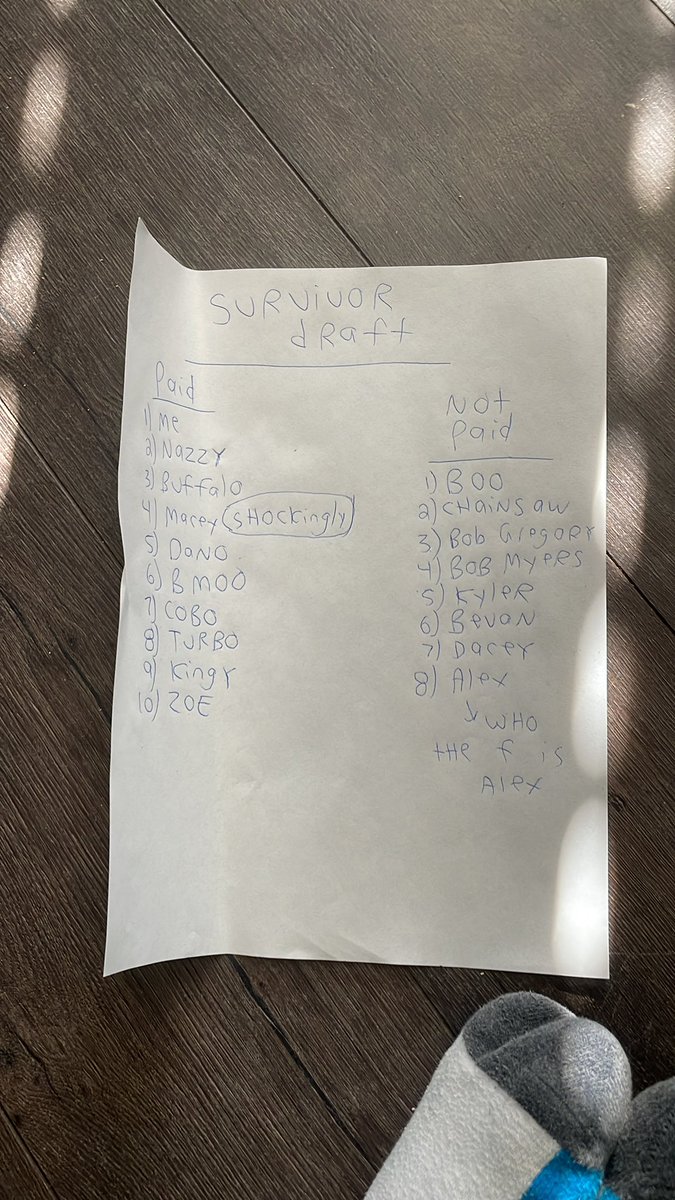 SURVIVOR
dRaft
Paid
1) Me
2) NAZZY
3) Buffalo
4) Macey SHOCKINGLY
5) DANO
6) B MOO
7) COBO
8) TURBO
9) KINGY
10) ZOE
NOT
Paid
1) BOO
2) CHAINSAW
3) Bob GREGORY
4) BOB MYERS
5) KYLER
6) Bevan
7) DACEY
8) Alex
↓ WHO
THE f is
Alex